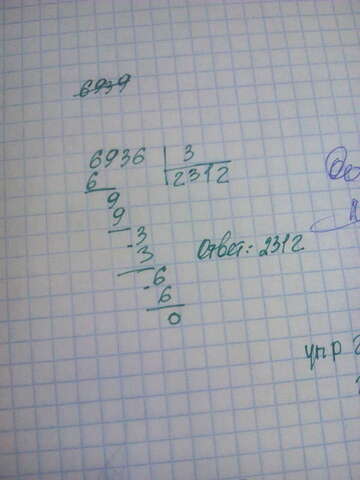 6939
6936 3
6 2312
9
9
3
3
Ответ: 2312
6
6
0
упр